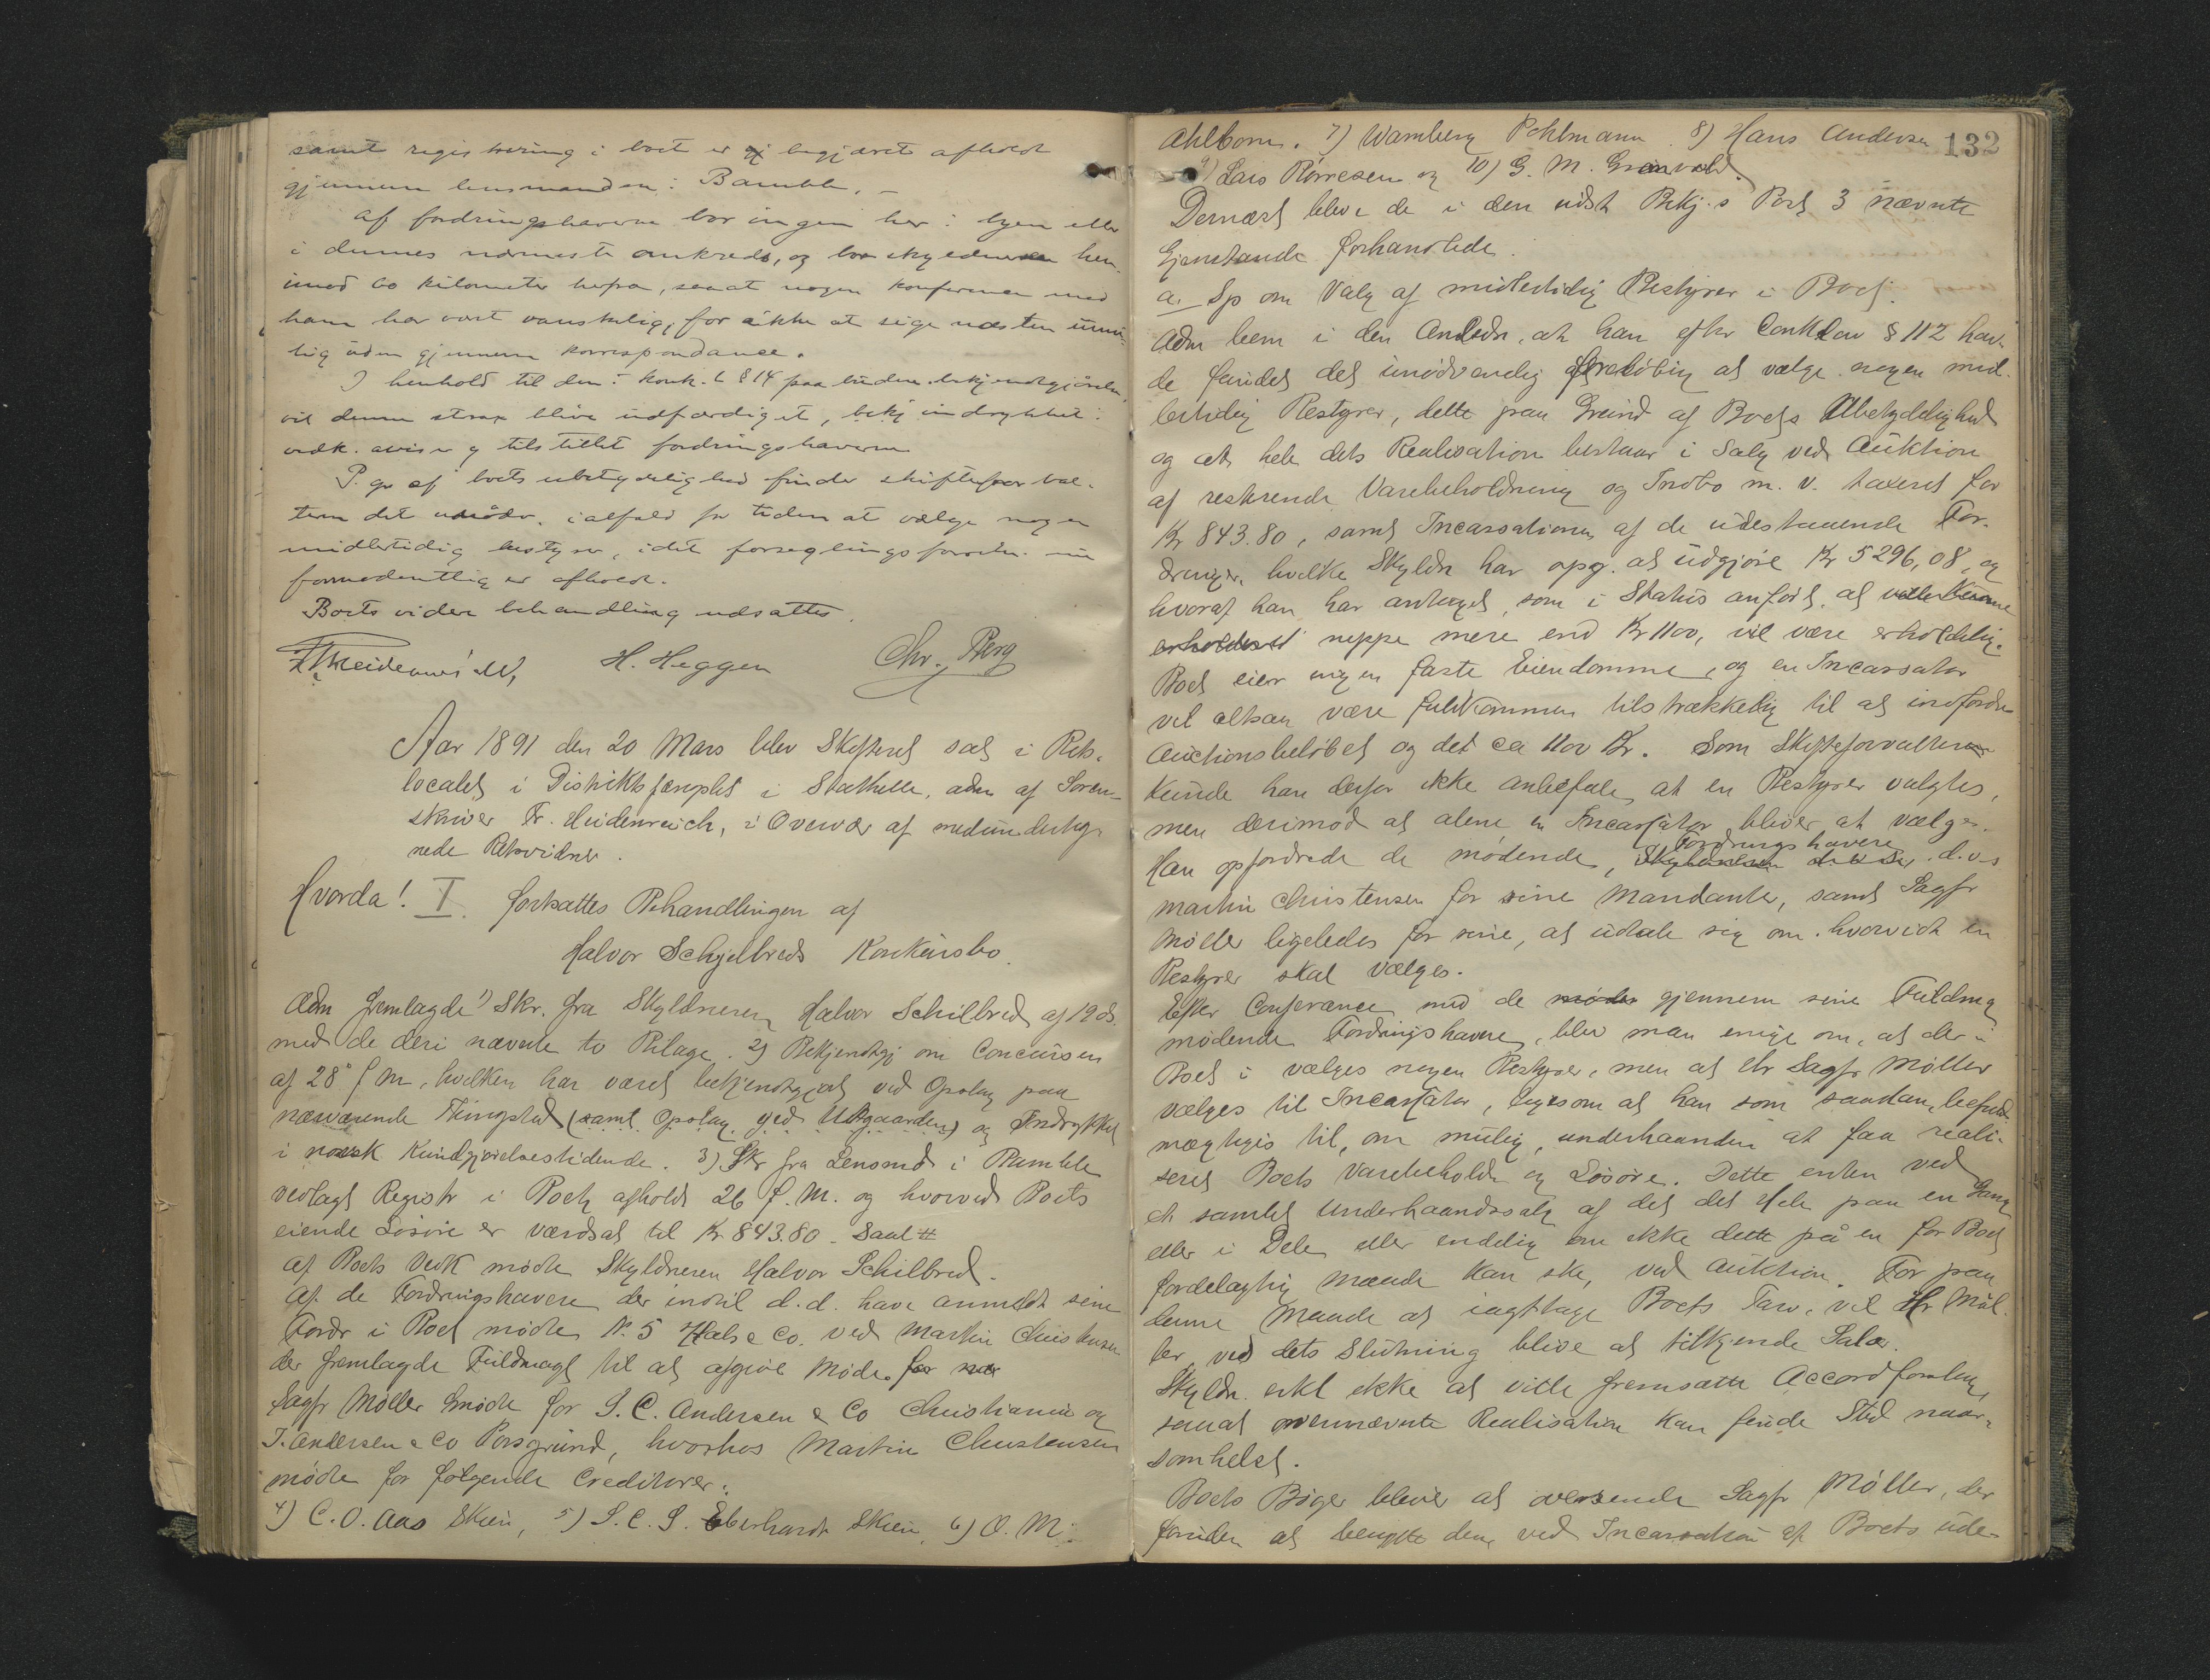 samt registrering i boet er begjæret afholdt
gjennem lensmanden i Bamble. –
Af fordringshaverne bor ingen her i byen eller
i dennes nærmeste omkreds, og bor skyldneren hen-
imod 60 kilometer herfra, saa at nogen konference med
ham har vært vanskelig, for ikke at sige næsten umu-
lig uden gjennem korrespondance.
I henhold til den i konk. l. § 14 paabudne bekjendtgjørelse,
vil denne strax blive udfærdiget, bekj. indrykket i
vedk. aviser og tilstillet fordringshaverne
P. gr. af boets ubetydelighed finder skifteforval-
teren det unødv. ialfald for tiden at vælge nogen
midlertidig bestyrer, idet forseglingsforretn. nu
formodentlig er afholdt.
Boets videre behandling udsattes.
H. Heggen Chr. Berg
Aar 1891 den 20 Mars blev Skifteret sat i Rets-
localet i Distriktsfængslet i Stathelle, adm af Soren-
skriver Fr. Heidenreich, i Overvær af medunderteg-
nede Retsvidner.
Hvorda! I. fortsattes Behandlingen af
Halvor Schjelbreds Konkursbo.
Adm fremlagde 1) Skr. fra Skyldneren Halvor Schilbred af 19 ds.
med de deri nævnte to Bilage. 2) Bekjendtgj om Concursen
af 28de f M, hvilken har været bekjendtgjort ved Opslag paa
nærværende Thingsted (samt Opslag ved ) og Indrykket
i norsk Kundgjørelsestidende. 3) Skr fra Lensmd i Bamble
vedlagt Registr i Boet afholdt 26 f. M. og hvorved Boets
eiende Løsøre er værdsat til Kr 843.80.
Af Boets Vedk mødte Skyldneren Halvor Schilbred.
Af de Fordringshavere der indtil d.d. have anmeldt sine
Fordr i Boet mødte N. 5 Hals & Co. ved Martin Christensen
der fremlagde Fuldmagt til at afgive Møde for
Sagfr Møller mødte for S. C. Andersen & Co Christiania og
T. Andersen & Co Porsgrund, hvorhos Martin Christensen
mødte for følgende Creditorer:
4) C. O. Aas Skien, 5) S. C. S. Eberhardt Skien, 6) O. M.
132
Ahlborn. 7) Wamberg Pohlmann. 8) Hans Andersen
9) Lars Rørresen og 10) G. M. Grønvold.
Dernæst bleve de i den udst Bekj.s Post 3 nævnte
Gjenstande forhandlede.
a. Sp om Valg af midlertidig Bestyrer i Boet.
Adm bem i den Anledn. at han efter Conkllov § 112 hav-
de fundet det unødvendig foreløbig at vælge nogen mid-
lertidig Bestyrer, dette paa Grund af Boets Ubetydelighed
og at hele dets Realisation bestaar i Salg ved Auktion
af resterende Varebeholdning og Indbo m. v. taxeret for
Kr 843.80, samt Incassationen af de udestaaende For-
dringer, hvilke Skyldn har opg. at udgjøre Kr 5296,08, og
hvoraf han har antaget, som i Status anført, at ville kunne
erholdes neppe mere end Kr 1100, vil være erholdelig.
Boet eier ingen faste Eiendomme, og en Incassator
vil altsaa være fuldkommen tilstrækkelig til at indfordre
Auctionsbeløbet og det ca 1100 Kr. Som Skifteforvalter
kunde han derfor ikke anbefale, at en Bestyrer valgtes,
men derimod at alene en Incassator bliver at vælge.
Han opfordrede de mødende, Fordringshavere d.v.s
Martin Christensen for sine Mandanter, samt Sagfr
Møller ligeledes for sine, at udtale sig om hvorvidt en
Bestyrer skal vælges.
Efter Conferance med de møder gjennem sine Fuldmg
mødende Fordringshavere, blev man enige om, at der i
Boet i vælges nogen Bestyrer, men at Hr Sagfr Møller
vælges til Incassator, ligesom at han som saadan, befuld-
mægtiges til, om mulig, underhaanden at faa reali-
seret Boets Varebeholdn og Løsøre. Dette enten ved
et samlet Underhaandssalg af det det Hele paa en Gang
eller i Dele, eller endelig om ikke dette på en for Boet
fordelagtig Maade kan ske, ved Auktion. For paa
denne Maade at iagttage Boets Tarv, vil Hr Møl-
ler ved dets Slutning blive at tilkjende Salær.
Skyldn. erkl ikke at ville fremsætte Accordforslag,
saaat ovennævnte Realisation kan finde Sted naar-
somhelst.
Boets Bøger bliver at oversende Sagfr Møller, der
foruden at benytte dem ved Incassation af Boets ude-